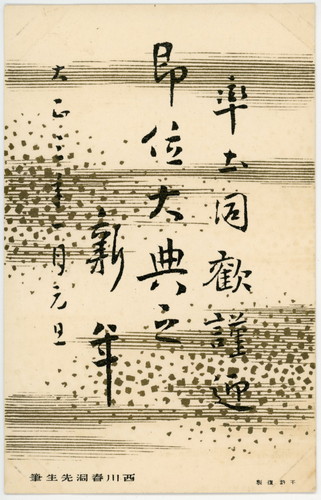 率土同歡謹迎
即位大典之
新年
大正三年一月元旦
西川春洞先生筆
不許復製